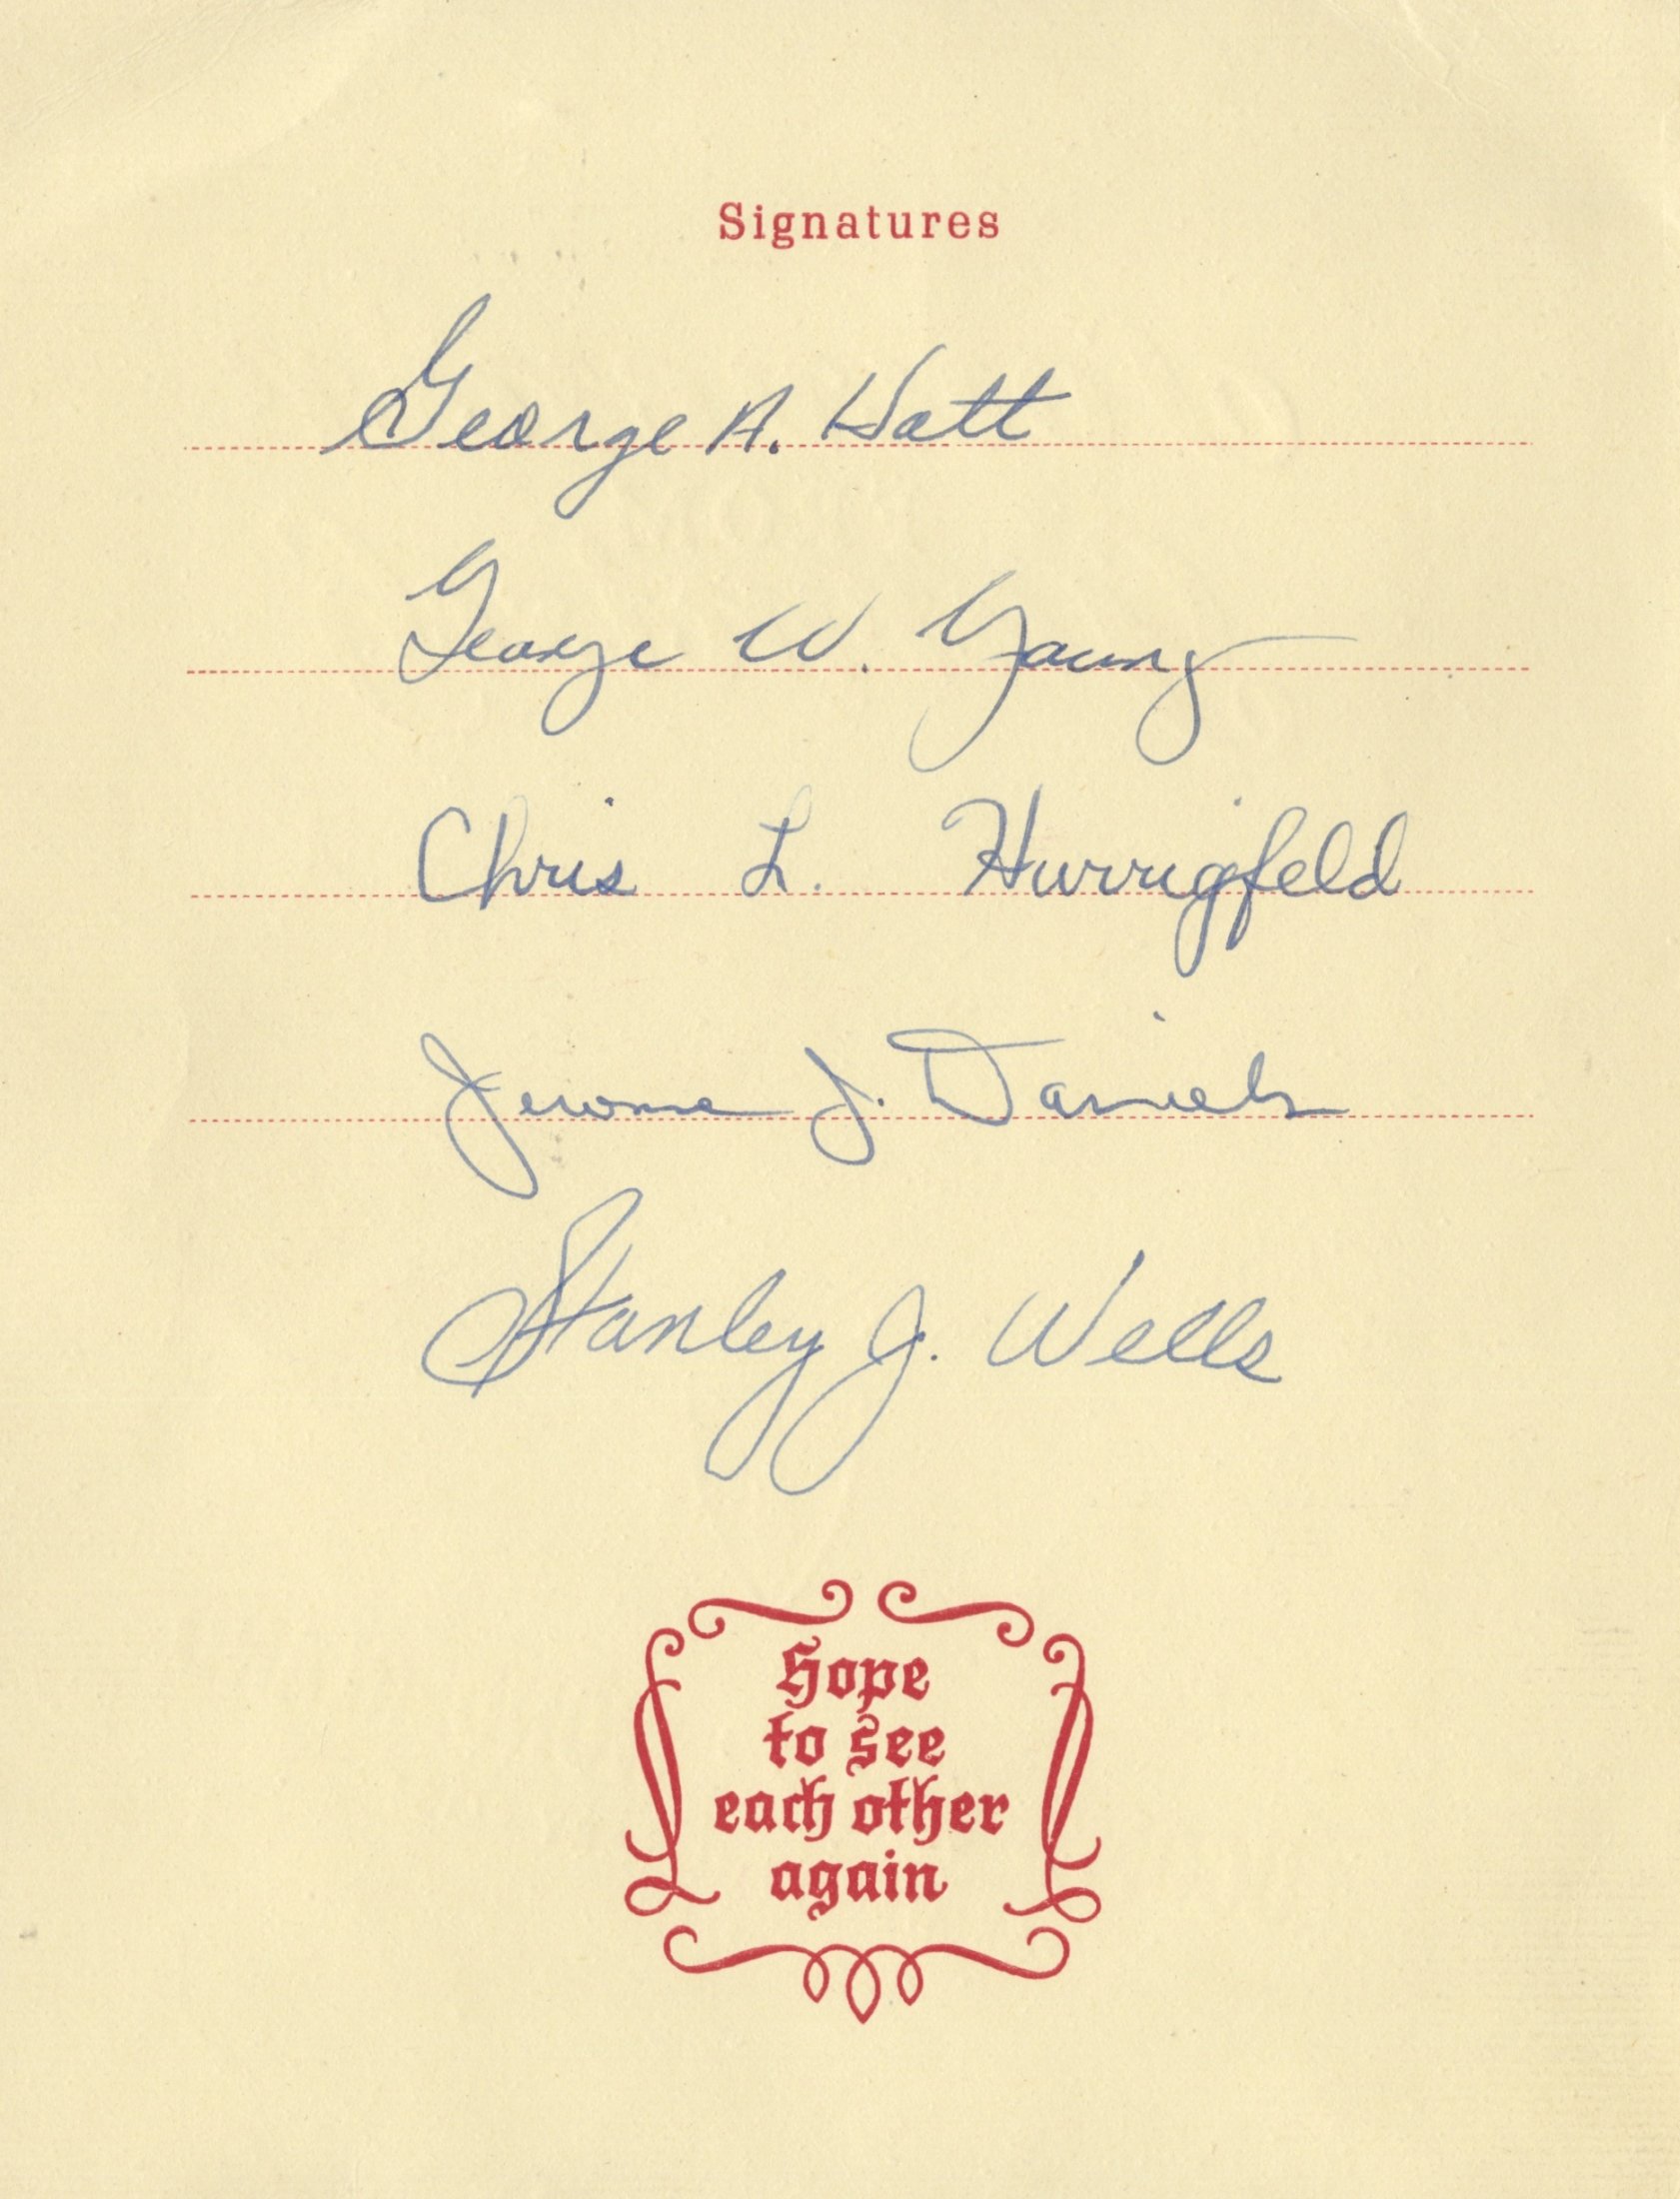 Signatures
George A. Hatt
George W. Young
Chris L. Hurrigfeld
Jerome J. Daniels
Stanley J. Wells
Hope
to see
each other
again